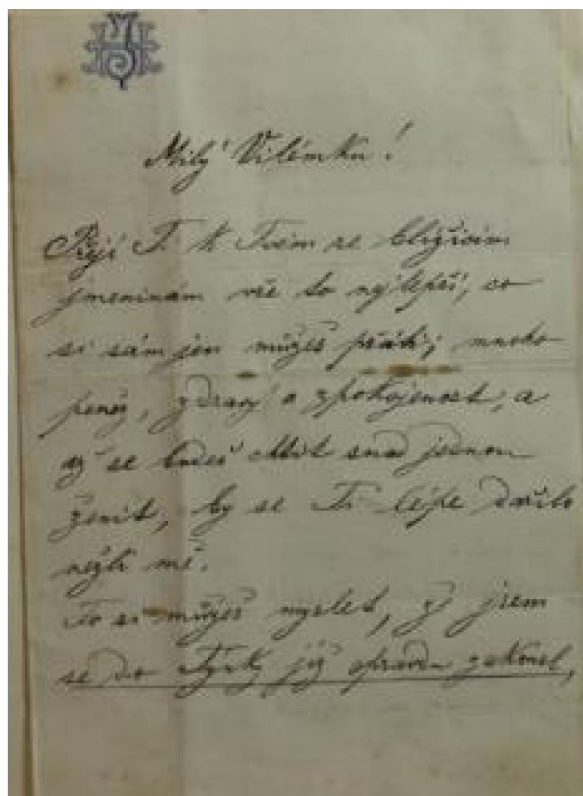 Milý Vilémku!
Přeji Ti k Tvém se blížícím
jmeninám vše to nejlepší, co
si sám jen můžeš přáti; mnoho
peněz, zdraví a spokojenost, a
až se budeš chtít snad jednou
ženit, by se Ti lépe dařilo
nežli mě.
To si můžeš myslet, že jsem
se do již opravdu zakoukal,